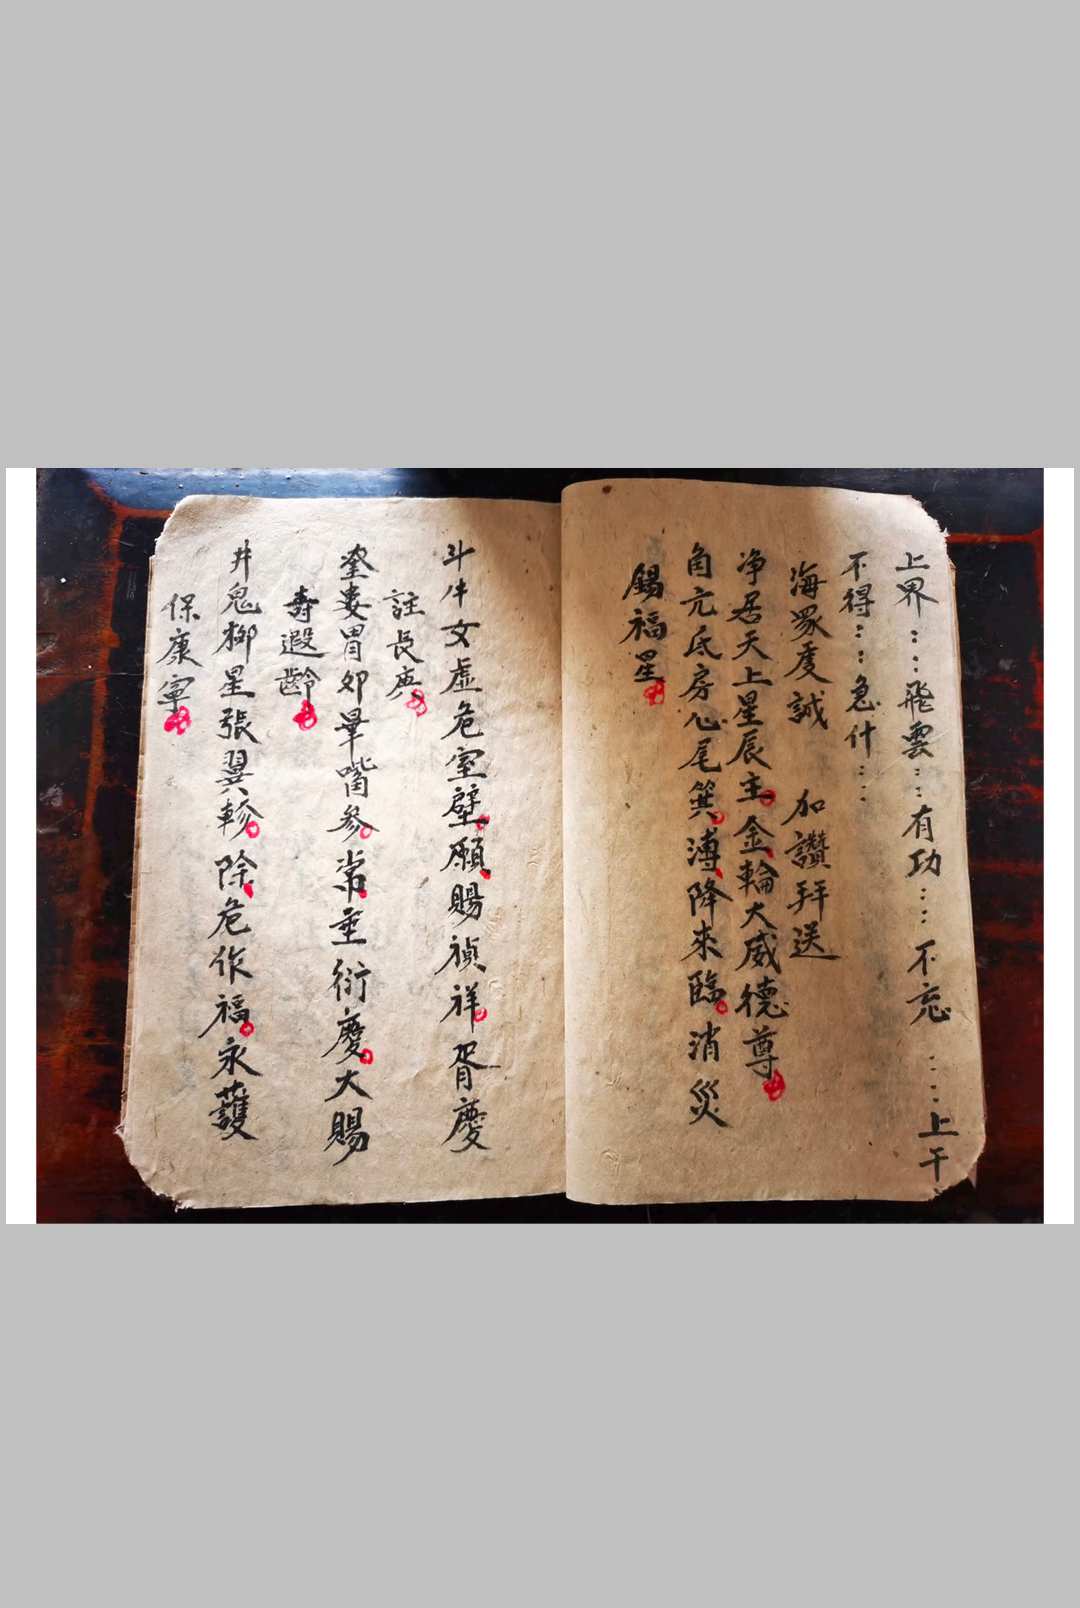 上界：：飛雲：：有功：：：不忘：：：上干
不得：：急什：：
海眾虔誠　加讚拜送
净居天上星辰主金輪大威德尊
角亢氐房心尾箕溥降來臨消災
錫福星
斗牛女虚危室壁願賜禎祥胥慶
註長庚
奎婁胃卯畢嘴參常垂衍慶大賜
壽遐齡
井鬼柳星張翼軫除危作福永護
保康寧